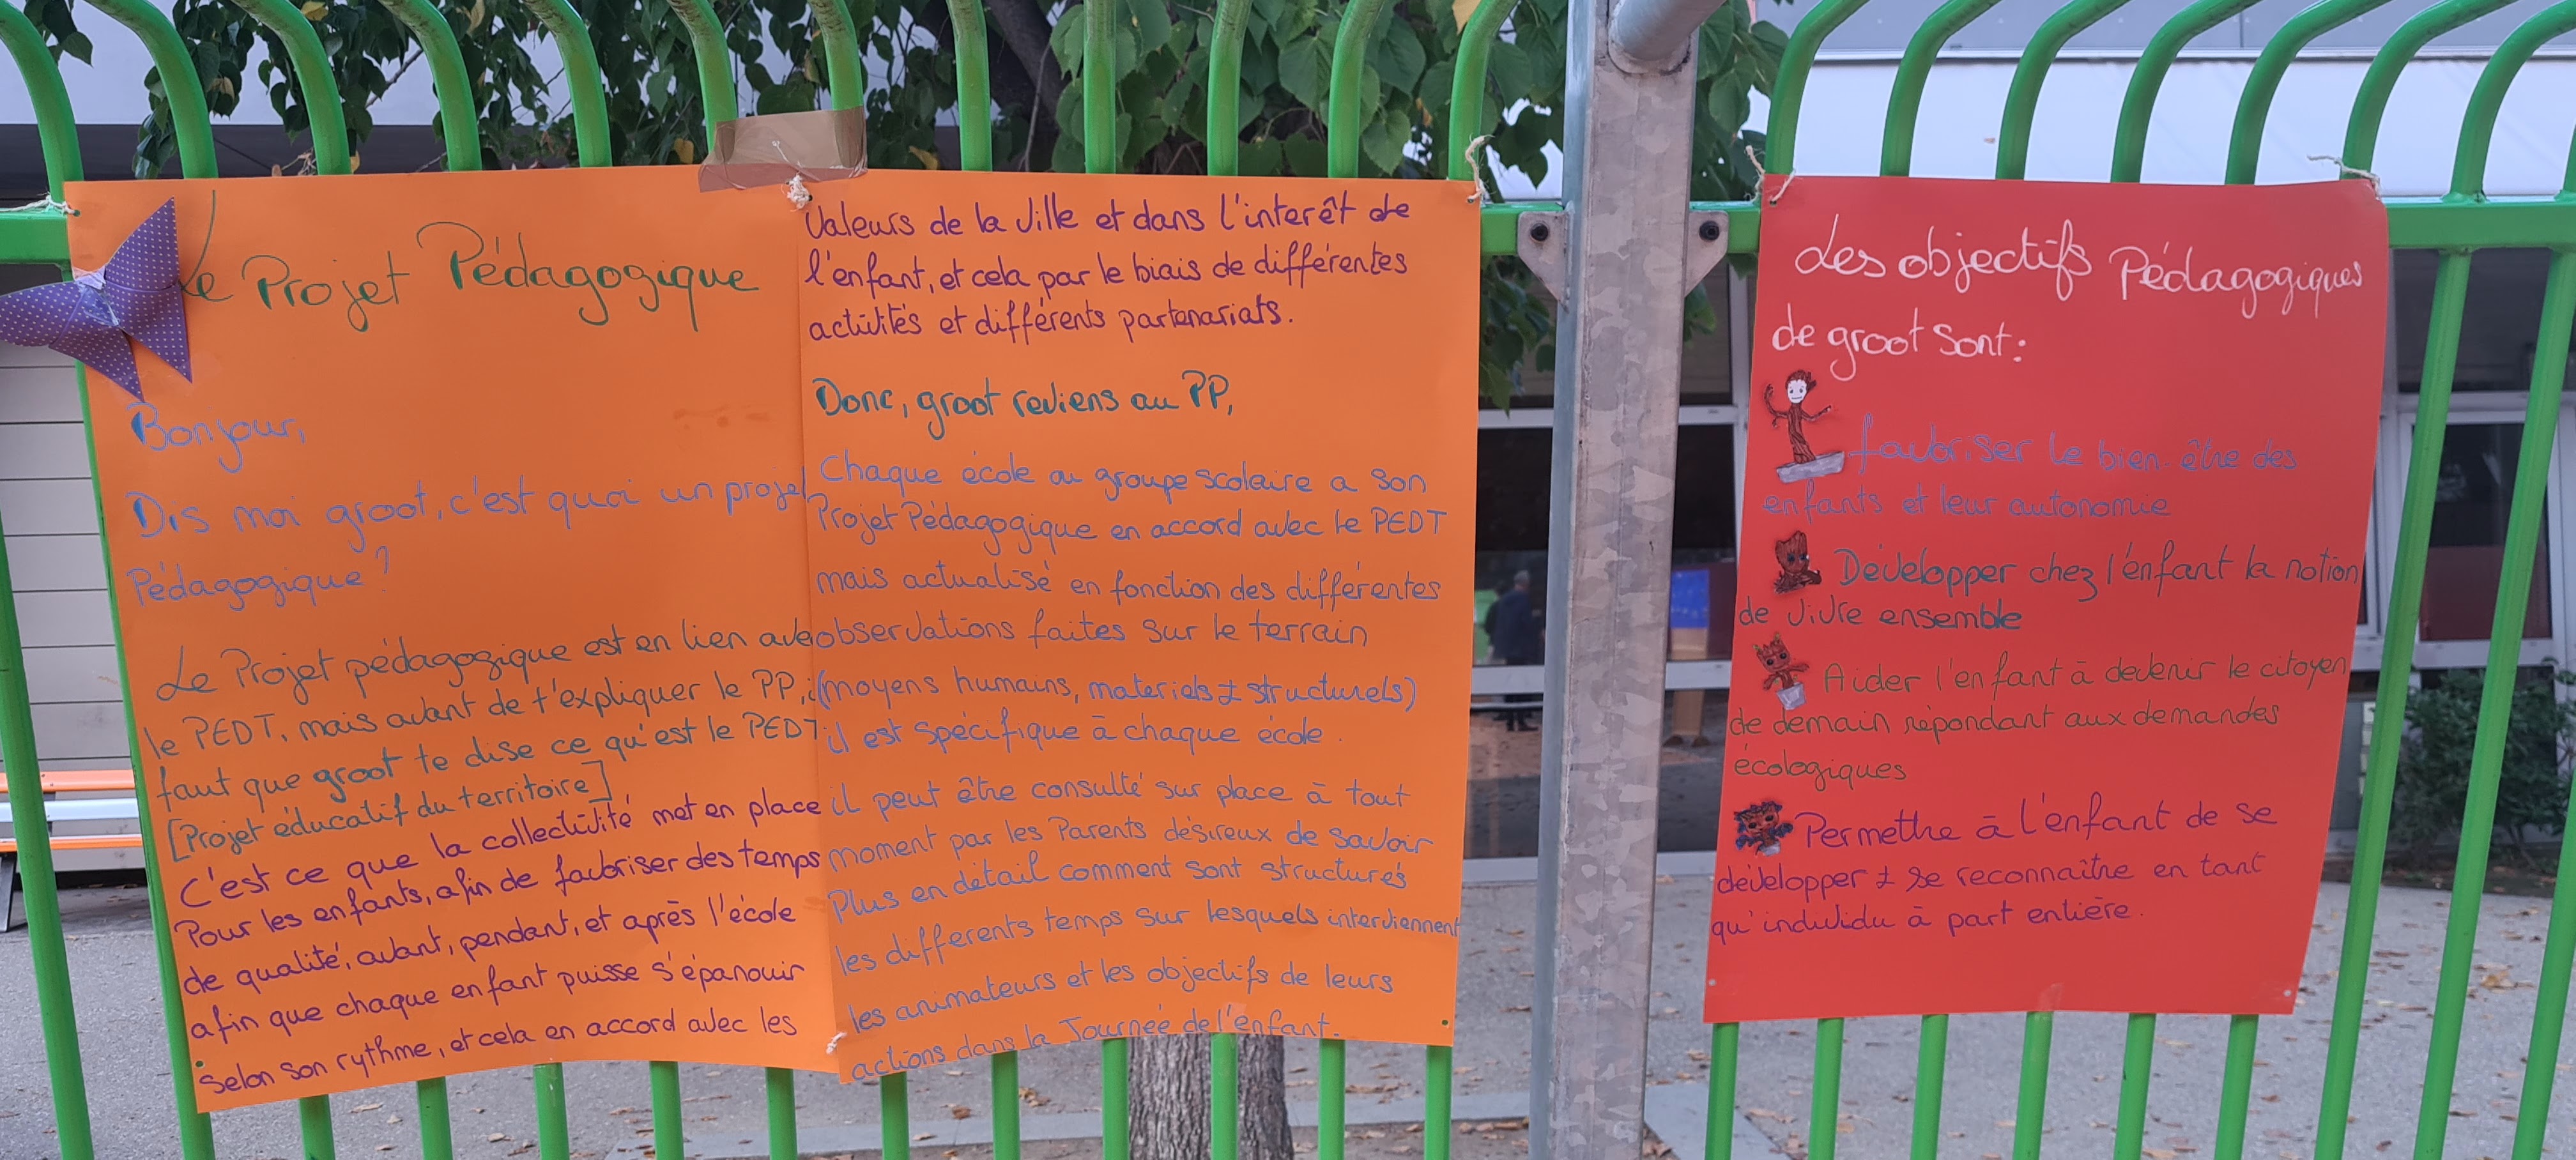 Le Projet Pédagogique
Bonjour,
Dis moi groot, c'est quoi un projet
Pédagogique?
Le Projet pédagogique est en lien avec
le PEDT, mais avant de t'expliquer le PP, il
faut que groot te dise ce qu'est le PEDT
[Projet éducatif du territoire]
C'est ce que la collectivité met en place
Pour les enfants, afin de favoriser des temps
de qualité, avant, pendant, et après l'école
afin que chaque enfant puisse s'épanouir
Selon son rythme, et cela en accord avec les
Valeurs de la Ville et dans l'interêt de
l'enfant, et cela par le biais de différentes
activités et différents partenariats.
Donc, groot reviens au PP,
Chaque école ou groupe scolaire a son
Projet Pédagogique en accord avec le PEDT
mais actualisé en fonction des différentes
observations faites sur le terrain
(moyens humains, materiels & structurels)
il est spécifique à chaque école.
il peut être consulté sur place à tout
moment par les Parents désireux de savoir
Plus en détail comment sont structurés
les differents temps sur lesquels interviennent
les animateurs et les objectifs de leurs
actions dans la Journée de l'enfant.
Les objectifs Pédagogiques
de groot sont:
favoriser le bien-être des
enfants et leur autonomie
Développer chez l'enfant la notion
de vivre ensemble
Aider l'enfant à devenir le citoyen
de demain répondant aux demandes
écologiques
Permettre à l'enfant de se
développer & se reconnaître en tant
qu'individu à part entière.